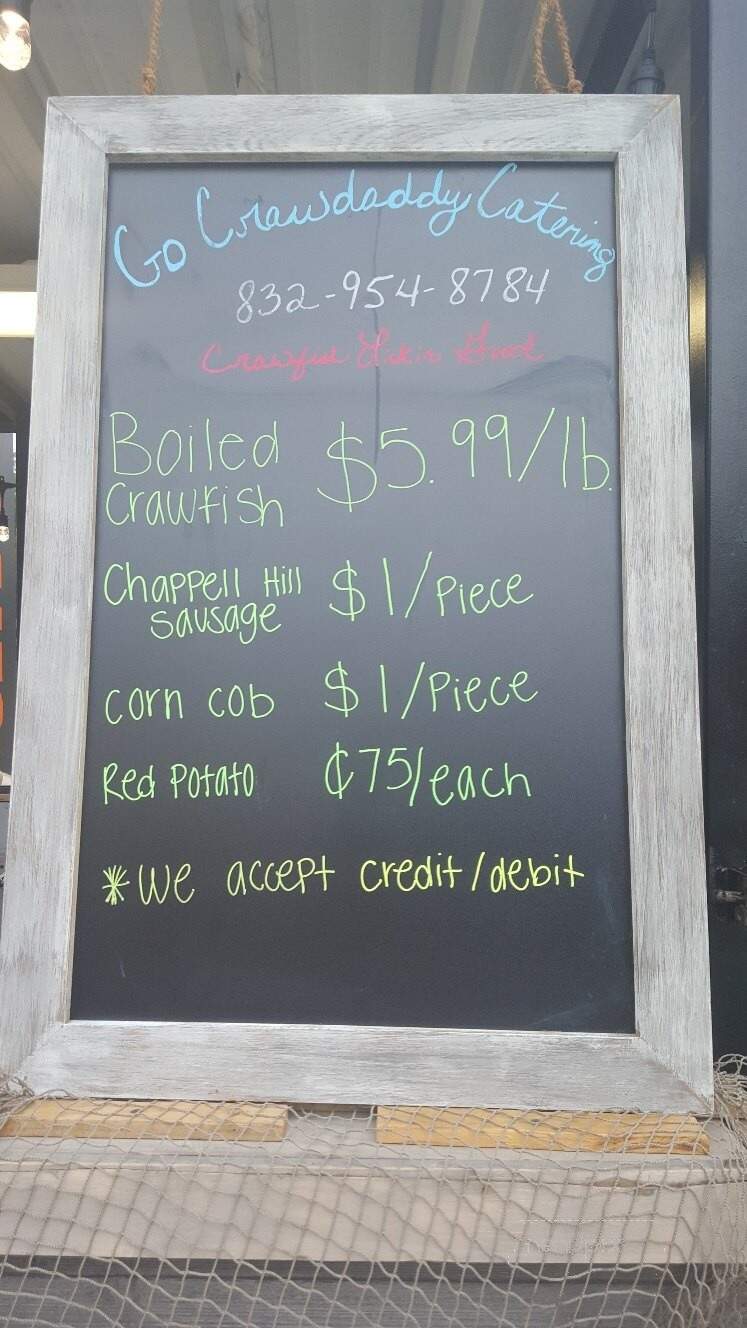 Go Crawdaddy Catering
832-954-8784
Crawfish
Boiled $5.99/lb.
Crawfish
Chappell Hill $1/Piece
Sausage
corn cob $1/Piece
Red Potato ¢75/each
*We accept credit/debit